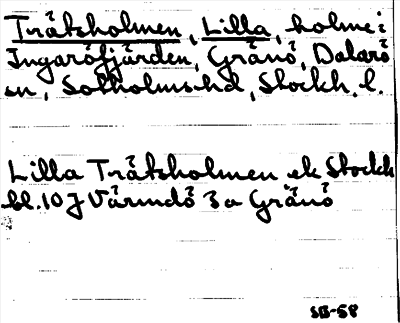 Trätsholmen, Lilla, holme i
Ingaröfjärden, Gränö, Dalarö
sn, Sotholms hd, Stockh. l.
Lilla Trätsholmen ek Stockh
bl. 10 J Värmdö 3 a Gränö
SB-58